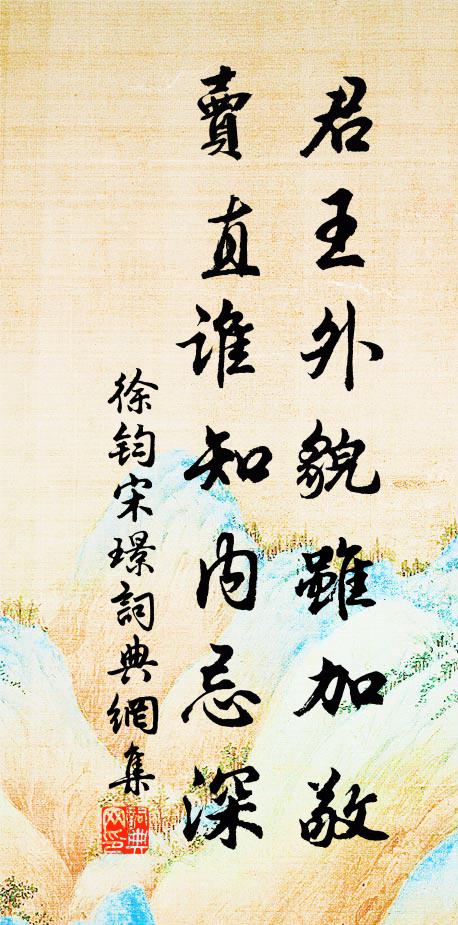 君王外貌雖加敬
賣直誰知内忌深
徐鈞宋璟詞典網集
詞典網印